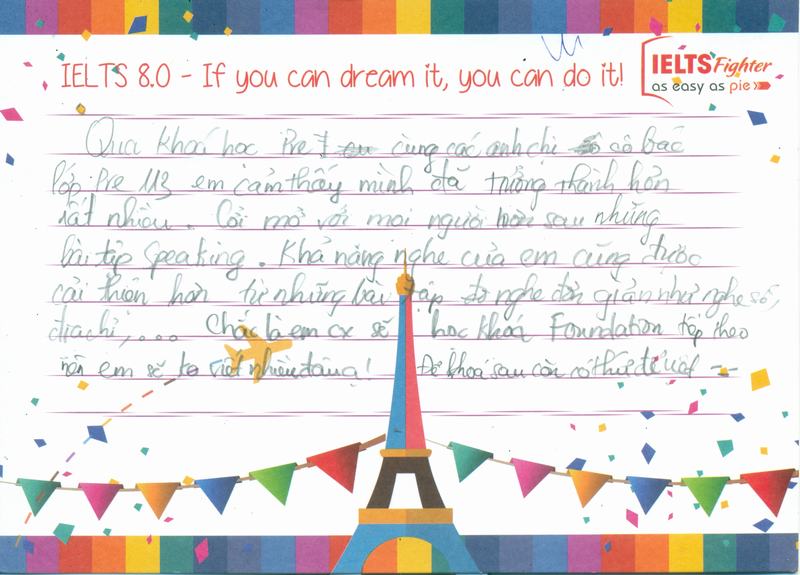 IELTS 8.0 - If you can dream it, you can do it!
IELTS Fighter
as easy as pie
Qua khoá học Pre I cùng các anh chị cô bác
lớp Pre 113 em cảm thấy mình đã trưởng thành hơn
rất nhiều. Cởi mở với mọi người hơn sau những
bài tập Speaking. Khả năng nghe của em cũng được
cải thiện hơn từ những bài tập nghe đơn giản như nghe số,
địa chỉ,.... Chắc là em cx sẽ học khoá Foundation tiếp theo
nên em sẽ viết nhiều đâu! Để khoá sau còn có thứ để viết